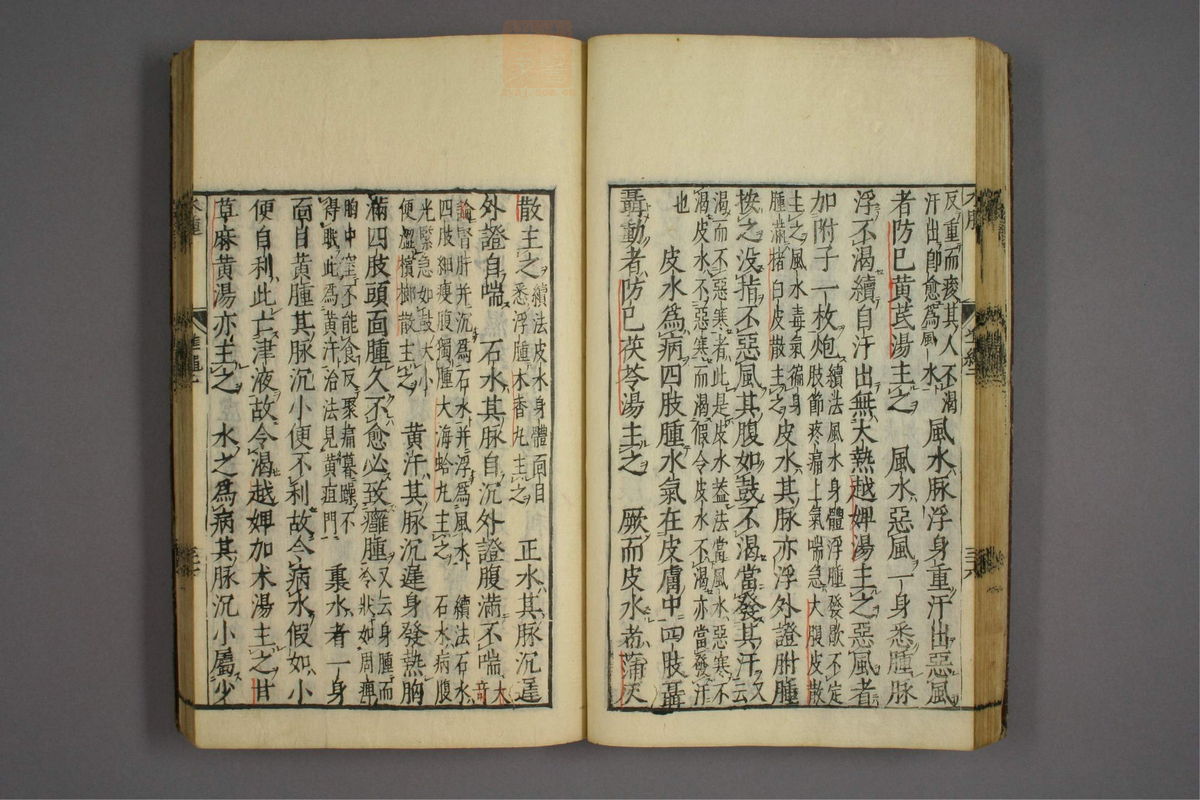 反重而痠其人不渴
汗出即愈爲風水
風水脉浮身重汗出惡風
者防已黃芪湯主之　風水惡風一身悉腫脉
浮不渴續自汗出無大熱越婢湯主之惡風者
加附子一枚炮
續法風水身體浮腫發歇不定
肢節疼痛上氣喘急大腹皮散
主之風水毒氣徧身
腫滿猪白皮散主之
皮水其脉亦浮外證胕腫
按之没指不惡風其腹如鼓不渴當發其汗
又
云
渴而不惡寒者此是皮水益法當風水惡寒不
渴皮水不惡寒而渴假令皮水不渴亦當發汗
也
皮水爲病四肢腫水氣在皮膚中四肢聶
聶動者防已茯苓湯主之　厥而皮水者蒲灰
散主之
續法皮水身體面目
悉浮腫木香丸主之
正水其脉沉遲
外證自喘　石水其脉自沉外證腹滿不喘
大
奇
論腎肝并沉爲石水并浮爲風水　續法石水
四肢細瘦腹獨腫大海蛤丸主之　石水病腹
光緊急如鼓大小
便澀檳榔散主之
黃汗其脉沉遲身發熱胸
滿四肢頭面腫久不愈必致癰腫
又云身腫而
冷狀如周痺
胸中窒不能食反聚痛暮躁不
得眠此爲黃汗治法見黃疸門
裏水者一身
面目黃腫其脉沉小便不利故令病水假如小
便自利此亡津液故令渴越婢加术湯主之甘
草麻黃湯亦主之　水之爲病其脉沉小屬少